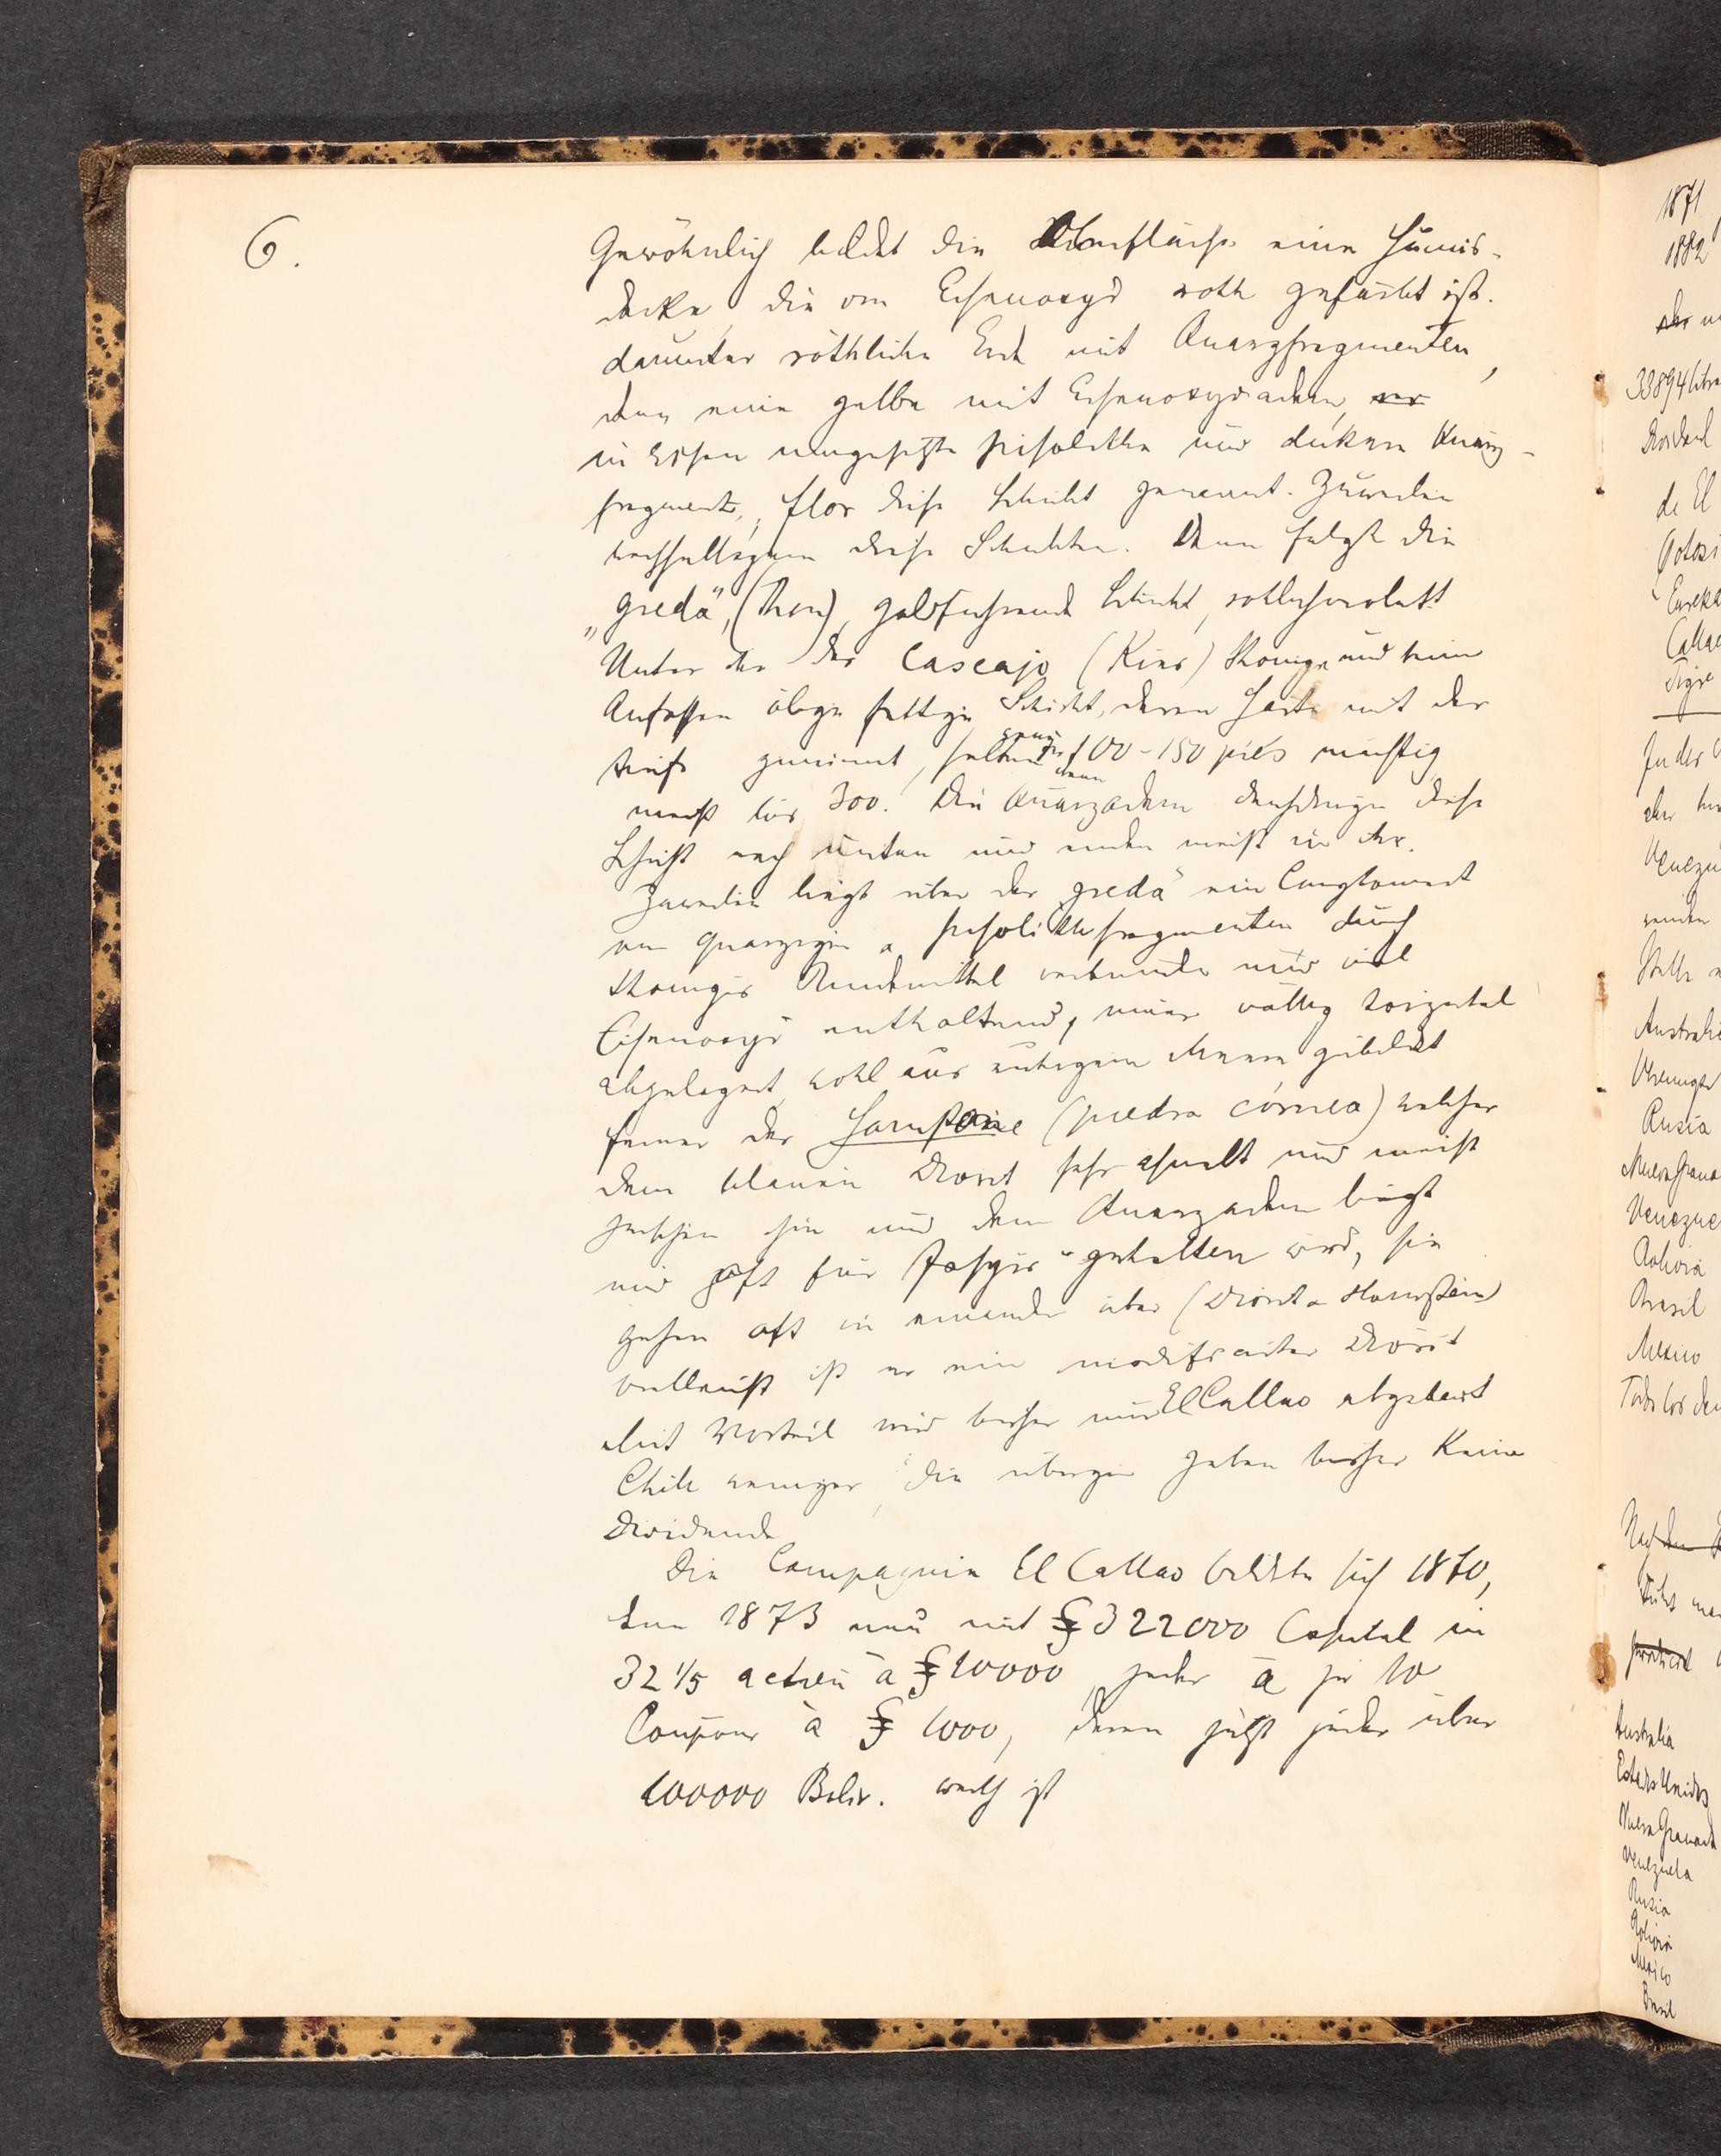 6.
Gewöhnlich bildet die Oberfläche eine Humus-
decke, die von Eisenoxyd roth gefärbt ist.
darunter röthliche Erde mit Quarzfragmenten,
dann eine gelbe mit Eisenoxydadern,
in Eisen umgesetzte pisolithe und dicken Quarz-
fragmente, flor diese Schicht genannt. Zuweilen
wechsellagern diese Schichten. Dann folgt die
„greda", (Thon), goldführende Schicht, rothviolett
Unter der der Cascajo (Kies) thonige und beim
Anfassen ölige fettige Schicht, deren Härte mit der
Tiefe zunimmt, selten 100-150 piés mächtig
meist bis 300. Die Quarzadern durchdringen diese
Schicht nach unten und enden meist in ihr.
Zuweilen liegt über der greda" ein Conglomerat
von quarzigen u pisolithfragmenten durch
thoniges Bindemittel verbunden und viel
Eisenoxyd enthaltend, immer völlig horizontal
abgelagert, wohl aus ruhigem Meere gebildet
ferner der Hornstein (piedra córnea) welcher
dem blauen Diorit sehr ähnelt und meist
zwischen ihm und den Quarzadern liegt
und oft für Jaspis" gehalten wird, sie
gehen oft in einander über (Diorit u Hornstein)
vielleicht ist er ein modificirter Diorit
Mit Vorteil wird bisher nur El Callao abgebaut
Chile weniger, die übrigen gaben bisher Keine
Dividende
Die Compagnie El Callao bildete sich 1870,
dann 1873 neu mit $ 322000 Capital in
32 1/5 actien à $ 10000, jeder à je 10
Coupons à $ 1000, deren jetzt jeder über
100000 Boliv. werth ist
1871
1882
33894 libra
de El
Potosi
Eureka
Callao
Tigre
In der
Venezu
Australi
Rusia
Nueva Grana
Venezue
Bolivia
Brasil
Mexico
Todos los de
Australia
Estados Unidos
Nueva Granada
Venezuela
Rusia
Bolivia
Mexico
Brasil